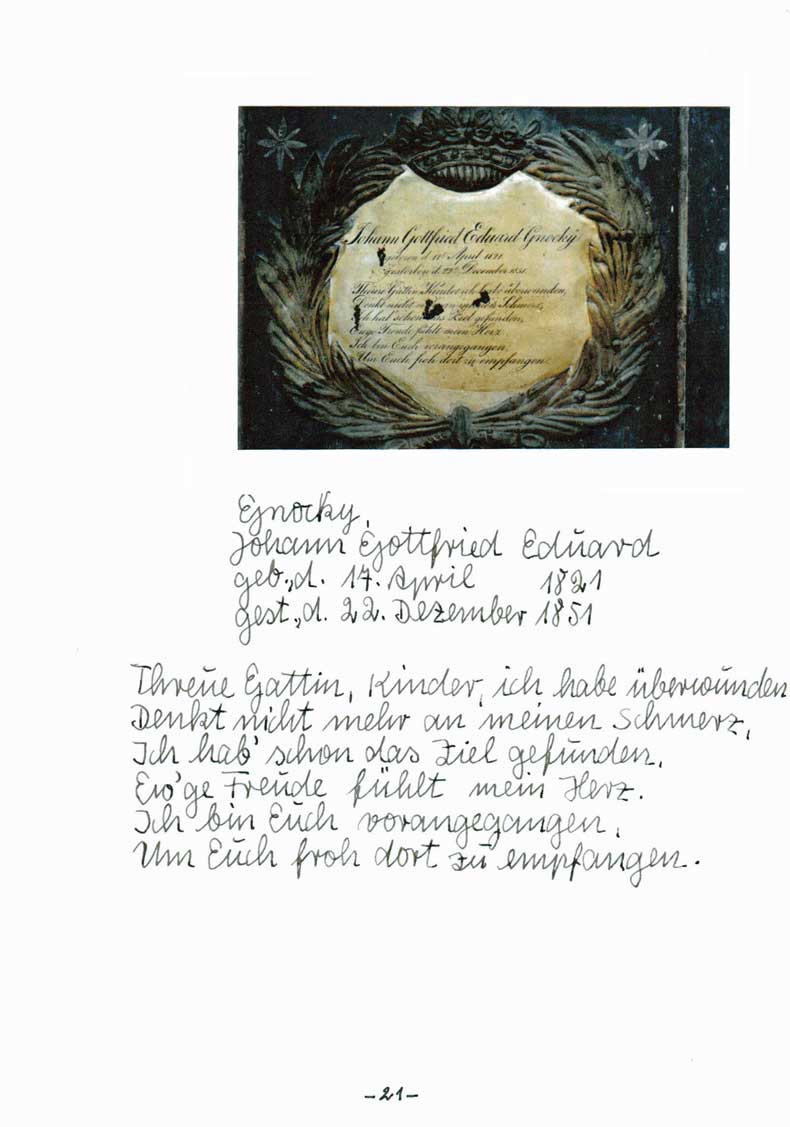 Johann Gottfried Eduard Gnocky
geboren d. 17t April 1821
Gestorben d. 22t December 1851.
Theure Gattin Kinder ich habe überwunden,
Denkt nicht meinen Schmerz,
Ich hab schon das Ziel gefunden,
Ewge Freude fühlt mein Herz
Ich bin Euch vorangegangen
Um Euch froh dort zu empfangen.
Gnocky,
Johann Gottfried Eduard
geb., d. 17. April 1821
gest., d. 22. Dezember 1851
Threue Gattin, Kinder, ich habe überwunden
Denkt nicht mehr an meinen Schmerz,
Ich hab' schon das Ziel gefunden,
Ew'ge Freude fühlt mein Herz.
Ich bin Euch vorangegangen,
Um Euch froh dort zu empfangen.
-21-